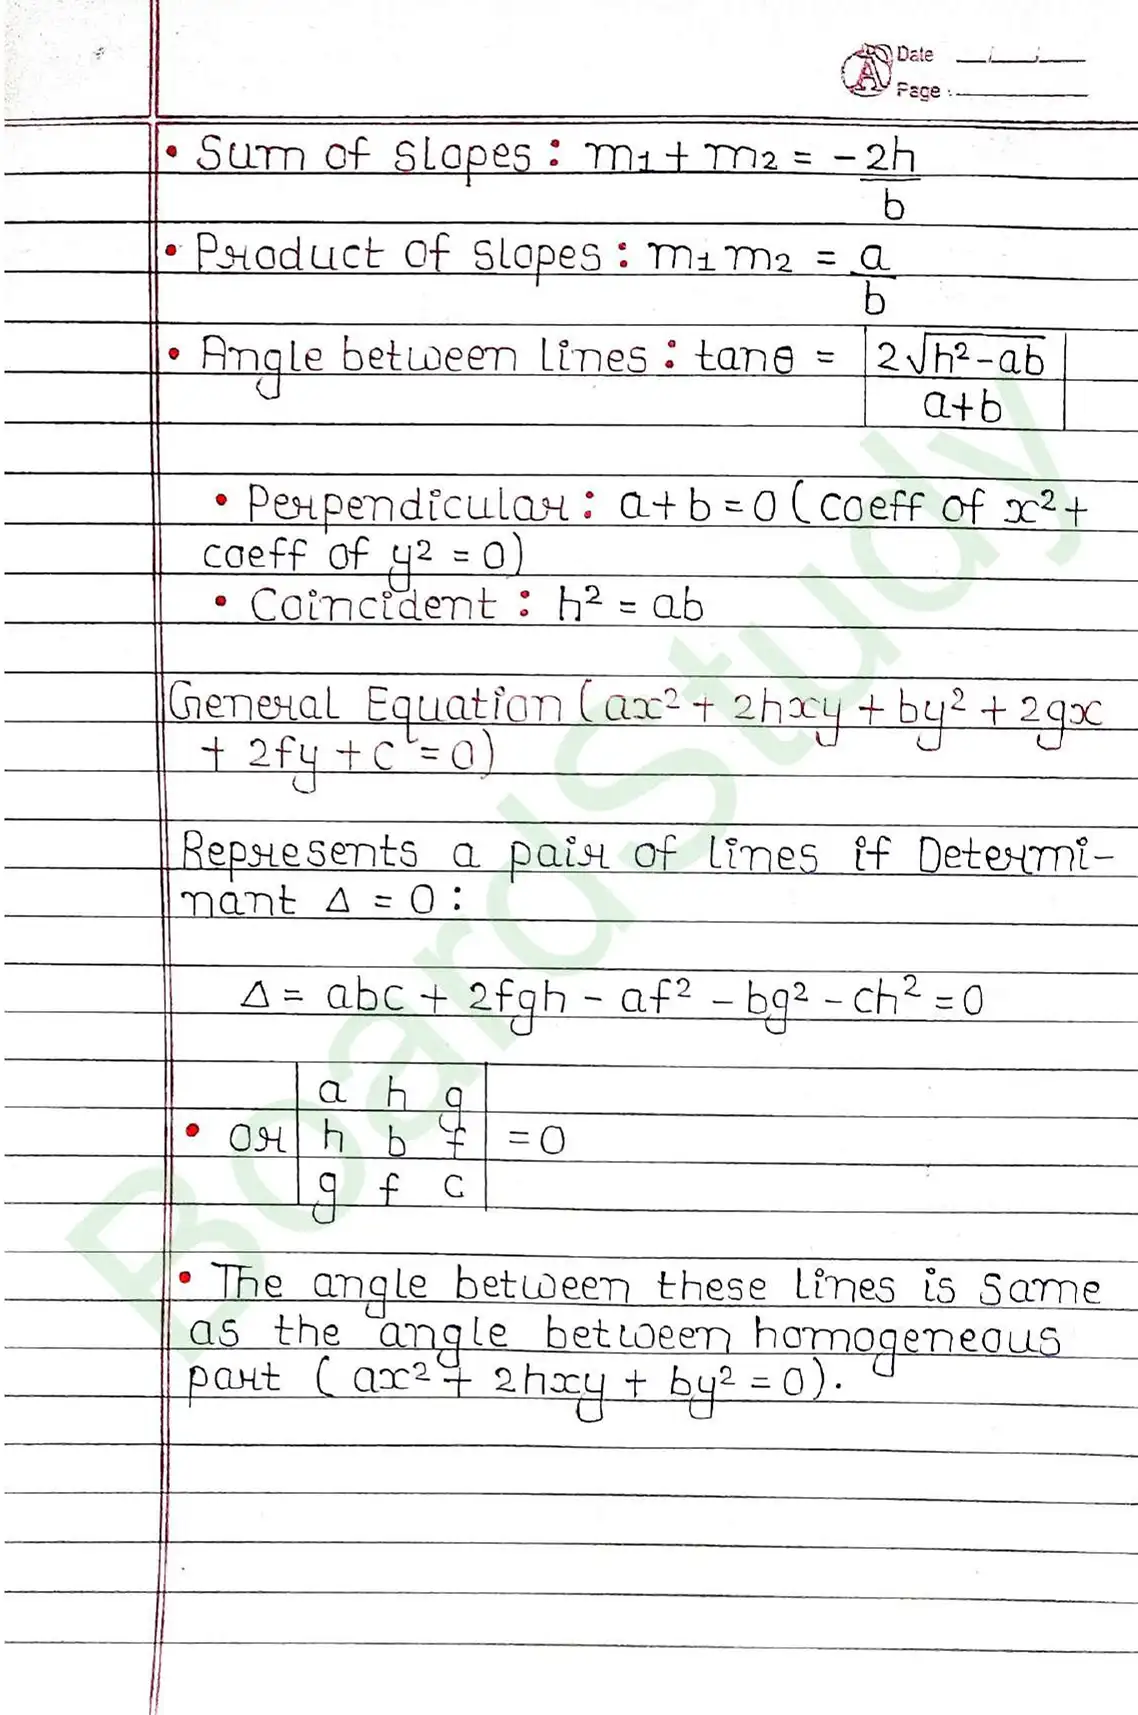 Date
Page :
• Sum of slopes : m₁ + m₂ = -2h/b
• Product of slopes : m₁ m₂ = a/b
• Angle between lines : tanθ = |2√(h²-ab) / (a+b)|
• Perpendicular : a+b = 0 ( coeff of x² +
coeff of y² = 0)
• Coincident : h² = ab
General Equation (ax² + 2hxy + by² + 2gx
+ 2fy + c = 0)
Represents a pair of lines if Determi-
nant Δ = 0 :
Δ = abc + 2fgh - af² - bg² - ch² = 0
a h g
• or h b f = 0
g f c
• The angle between these lines is same
as the angle between homogeneous
part ( ax² + 2hxy + by² = 0).
BoardStudy